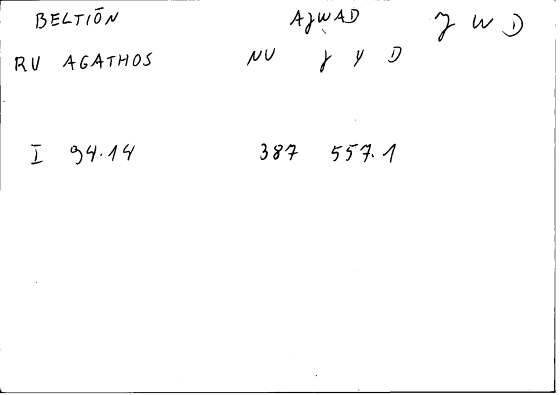 BELTIŌN AJWAD J W D
RU AGATHOS NU J Y D
I 94.14 387 557.1